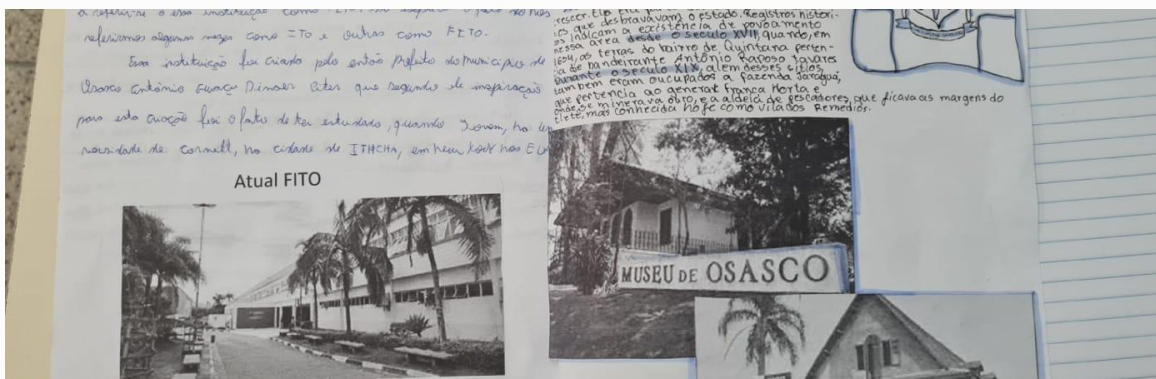 referirmos algumas vezes como ITO e outras como FITO.
Essa instituição foi criada pelo então Prefeito do município de
Osasco Antônio
que segundo ele inspiração
para esta criação foi o fato de ter estudado, quando Jovem, na
de Cornell, na cidade de ITHCHA, em
Atual FITO
que desbravavam o estado. Registros histori-
indicam a existência de povoamento
nessa área desde o século XVII, quando, em
as terras do bairro de Quintana perten-
bandeirante Antônio Raposo Tavares
Durante o século XIX, além desses sítios,
também eram oucupados a fazenda Jaraguá,
que pertencia ao general Franca Horta e
onde se minerava obro, e a aldeia de pescadores, que ficava as margens do
tiete, mas conhecida hoje como vila dos Remedios.
MUSEU DE OSASCO